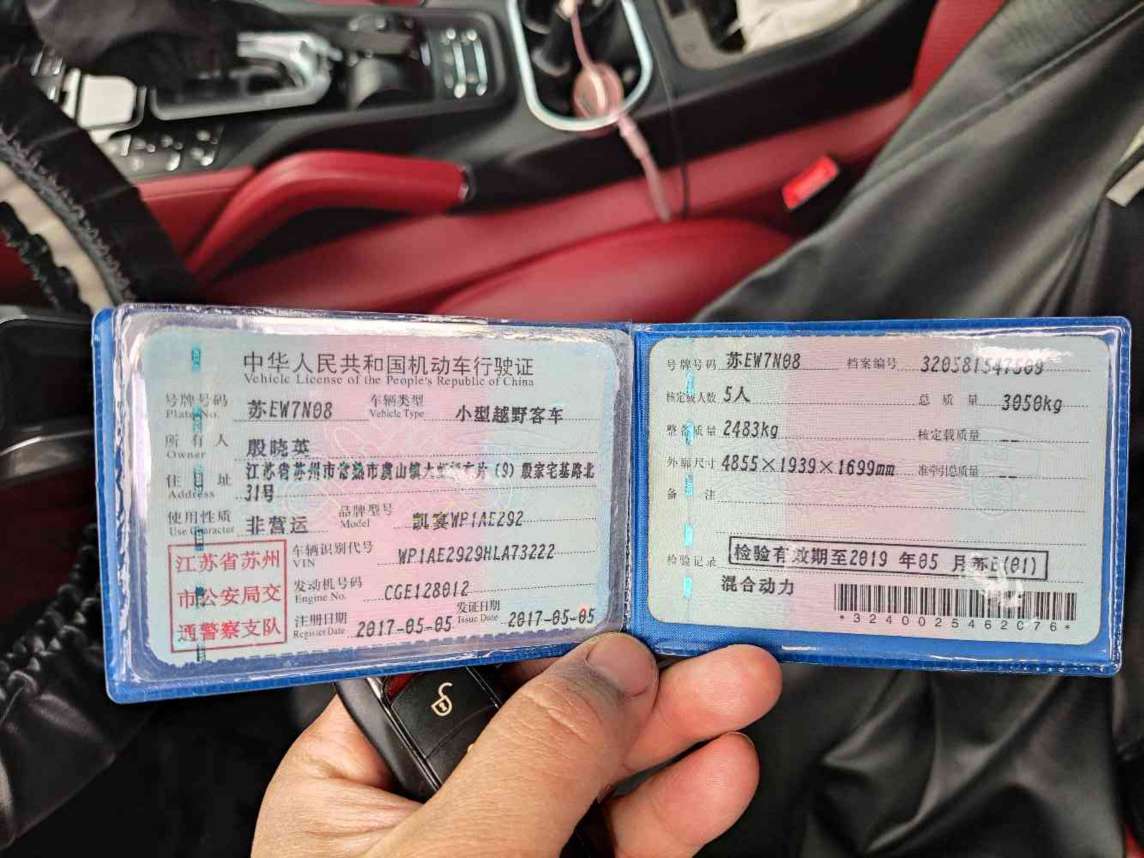 中华人民共和国机动车行驶证
Vehicle License of the People's Republic of China
号牌号码 苏EW7N08 车辆类型 小型越野客车
Plate No. Vehicle Type
所有人 殷晓英
Owner
住址 江苏省苏州市常熟市虞山镇大 片(9)殷家宅基路北
Address 31号
使用性质 非营运 品牌型号 凯宴WP1AE292
Use Character Model
江苏省苏州
市公安局交
通警察支队
车辆识别代号 WP1AE2929HLA73222
VIN
发动机号码 CGE128012
Engine No.
注册日期 2017-05-05 发证日期 2017-05-05
Register Date Issue Date
号牌号码 苏EW7N08 档案编号 320581547509
核定载人数 5人 总质量 3050kg
整备质量 2483kg 核定载质量 --
外廓尺寸 4855×1939×1699mm 准牵引总质量 --
备注
检验记录 检验有效期至2019年05月苏E(01)
混合动力
*3240025462076*